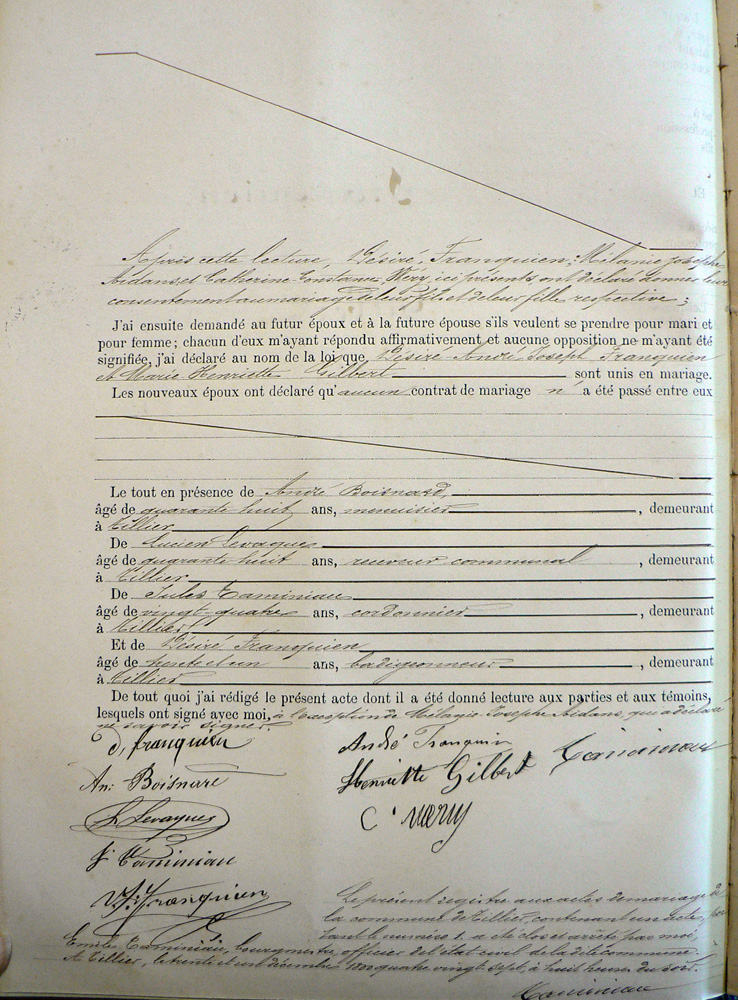 Après cette lecture, Désiré Franquien, Mélanie Josèphe
Aidans et Catherine Constance Wéry ici présents ont déclaré donner leur
consentement au mariage de leur fils et de leur fille respective ;
J'ai ensuite demandé au futur époux et à la future épouse s'ils veulent se prendre pour mari et
pour femme ; chacun d'eux m'ayant répondu affirmativement et aucune opposition ne m'ayant été
signifiée, j'ai déclaré au nom de la loi que Désiré André Joseph Franquien
et Marie Henriette Gilbert sont unis en mariage.
Les nouveaux époux ont déclaré qu'aucun contrat de mariage n'a été passé entre eux
Le tout en présence de André Boisnard,
âgé de quarante huit ans, menuisier, demeurant
à Tillier
De Lucien Levaques
âgé de quarante huit ans, receveur communal, demeurant
à Tillier
De Jules Taminiau
âgé de vingt-quatre ans, cordonnier, demeurant
à Tillier
Et de Désiré Franquien
âgé de trente et un ans, badigeonneur, demeurant
à Tillier
De tout quoi j'ai rédigé le présent acte dont il a été donné lecture aux parties et aux témoins,
lesquels ont signé avec moi, à l'exception de Mélanie Josèphe Aidans qui a déclaré
ne savoir signer.
D. franquien
André Franquin
Taminiau
An: Boisnare
Henriette Gilbert
L Levaques
C. wery
J. Taminiau
Franquien
Le présent registre aux actes de mariage de
la commune de Tillier, contenant un acte,
tant le numéro 1. a été clos et arrêté par moi,
Emile Taminiau, bourgmestre officier de l'état civil de la dite commune.
A Tillier, le trente et un décembre 1800 quatre vingt sept, à huit heures du soir.
Taminiau